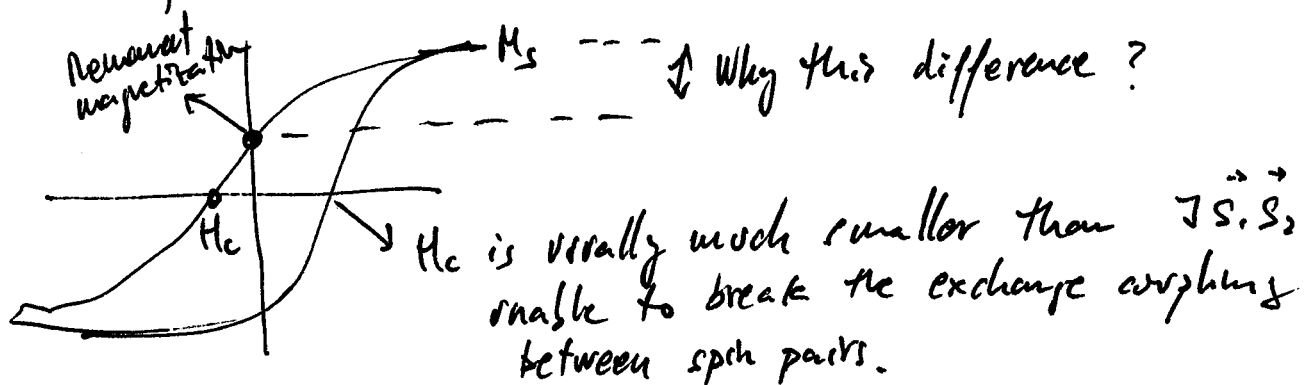 Remanent
magnetization
Ms
Why this difference ?
Hc
Hc is usually much smaller than J S₁ S₂
unable to break the exchange coupling
between spin pairs.